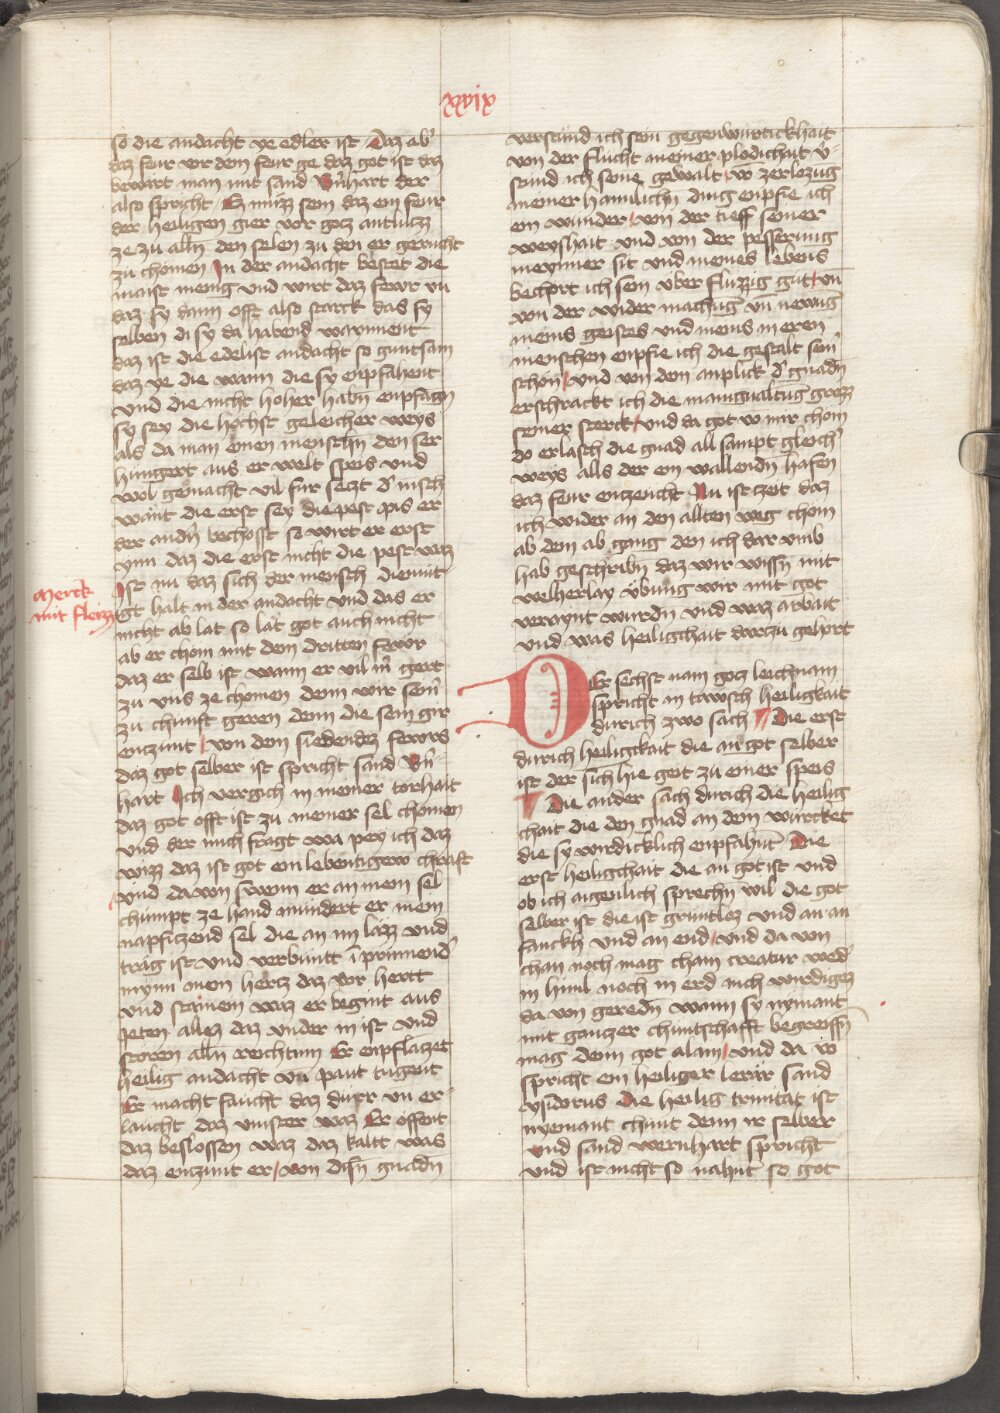 xxix
so die andacht ye edler ist Daz ab̄
daz feur vor dem feur ge daz got ist daz
bewart man mit sand Bn̄hart der
also spricht Ez muzz sein daz ein feur
der heiligen gier vor gotz antlutzz
ze zu alln̄ den selen zu den er gerucht
zu chomen In der andacht bestet die
maist menig und wirt daz fewr vn̄
daz sy dann offt also starck das sy
selben di sy da habend waynnent
daz ist die edelist andacht so guntsam
daz ye die wann die sy enpfahent
vnd die nicht hoher habn̄ enpfāgn̄
sy sey die hochst geleicher weys
als da man einen menschn̄ den ser
hungert aus er welt speis vnd
wol gemacht vil fur seczt d̄ mensch
wānt die erst sey die pest pis er
der andn̄ bechosst so wirt er erst
ynn daz die erst nicht die pest waz
Ist nu daz sich der mensch diemut
merck
mit fleizz
gt halt in der andacht vnd das er
nicht ab lat so lāt got auch nicht
ab er chom mit dem dritten fewr
daz er selb ist wann er vil m̄ gert
zu vns ze chomen denn wir sein̄
zu chunft geren denn die sein gir
enczunt von dem siedendez fewrs
daz got selber ist spricht sand Bn̄
hart Ich vergich in meiner torhait
daz got offt ist zu meiner sel chomen
vnd der mich fragt wa pey ich daz
wizz daz ist got ein lebentigew chraft
vnd da von swenn er an mein sel
chumpt ze hand mundert er mein
napfitzend sel die an im lāzz vnd
trāg ist vnd verbuntt ī prinnend̄
mynn mein hertz daz vor hertt
vnd stainein waz er begint aus
Jeten allez daz vnder im ist vnd
storen alln̄ reichtum Er enpflatzet
heilig andacht vn̄ paut tugent
Er macht faucht daz durr vn̄ er
laucht daz vinster waz Er offent
daz beslossen waz daz kaltt was
daz enczunt er von disn̄ gnadn̄
verstund ich sein gegenwurtickhait
von der flucht meiner plodichait v̄
stund ich seine gewalt vō zerlozūg
meiner haimlichn̄ ding enpfie ich
ein wunder von der tieff seiner
weyshait vnd von der pesserung
meynner sit vnd meines lebens
bechort ich sein uber fluzzig gut vn̄
von der wider machūg vn̄ newūg
meins geistes vnd meins inneren
menschen enpfie ich die gestalt sein̄
schon vnd von dem anplick d̄ gnadn̄
erschrackt ich die manigualtūg grozz
seiner sterck vnd da got vō mir chom
do erlasch die gnad all sampt gleich̄
weys alls der ein wallendn̄ hafen
daz feur entzeucht Nu ist zeit daz
ich wider an den allten weg chom
ab dem ab gang den ich dar vmb
hab geschribn̄ daz wir wissn̄ mit
welherlay ubung wir mit got
veraynt wurdn̄ vnd waz arbait
vnd was heiligchait darczu gehort
Der sechst nam gocz leichnam
spricht in tawsch heiligkait
durich zwo sach Die erst
durich heiligckait die an got selber
ist der sich hie geit zu einer speis
Die ander sach durich die heilig
chait die den gnad an dem wurcket
die sy wirdicklich enpfahūt Die
erst heiligchait die an got ist vnd
ob ich aigenlich sprechn̄ wil die got
selber ist die ist gruntloz vnd an an
fanckh vnd an end vnd da von
chan noch mag chain creatur wed̄
in himl noch in erd nich wirdigez
da von geredn̄ wann sy nyemant
mit ganczer chuntschafft begreiffn̄
mag denn got alain vnd da vō
spricht ein heiliger lerār sand
ysidorus Die heilig trinitāt ist
nyemant chunt denn ir selber
vnd sand wernhart spricht
vnd ist nicht so nahūt so got